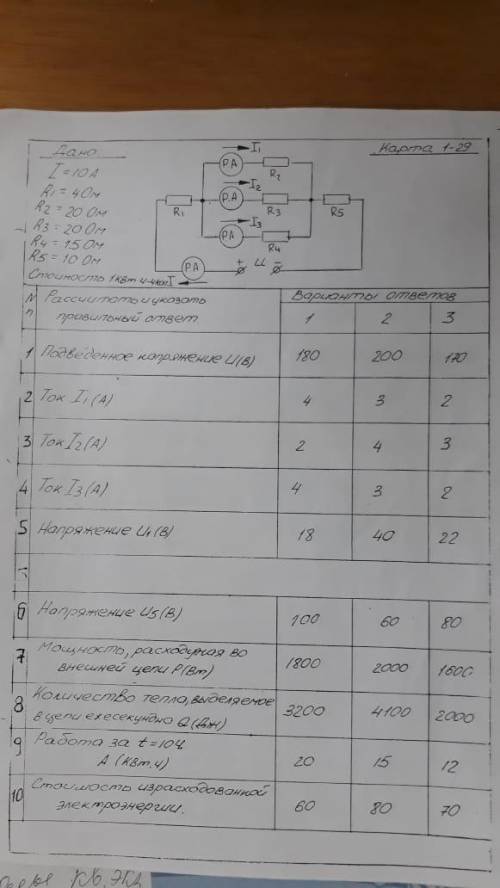 Дано
Карта 1-29
I = 10 А
R1 = 4 Ом
R2 = 20 Ом
R3 = 20 Ом
R4 = 15 Ом
R5 = 10 Ом
Стоимость 1 квт.ч-4коп
I1
РА
R2
I2
R1
РА
R3
R5
I3
РА
R4
I
РА
+ U -
N п
Рассчитать и указать правильный ответ
Варианты ответов
1 2 3
1 Подведенное напряжение U(В) 180 200 170
2 Ток I1(А) 4 3 2
3 Ток I2(А) 2 4 3
4 Ток I3(А) 4 3 2
5 Напряжение U1(В) 18 40 22
6 Напряжение U5(В) 100 60 80
7 Мощность, расходуемая во
внешней цепи Р(Вт) 1800 2000 1600
8 Количество тепла, выделяемое
в цепи ежесекундно Q(Дж) 3200 4100 2000
9 Работа за t=10ч
А (Квт.ч) 20 15 12
10 Стоимость израсходованной
электроэнергии. 60 80 70